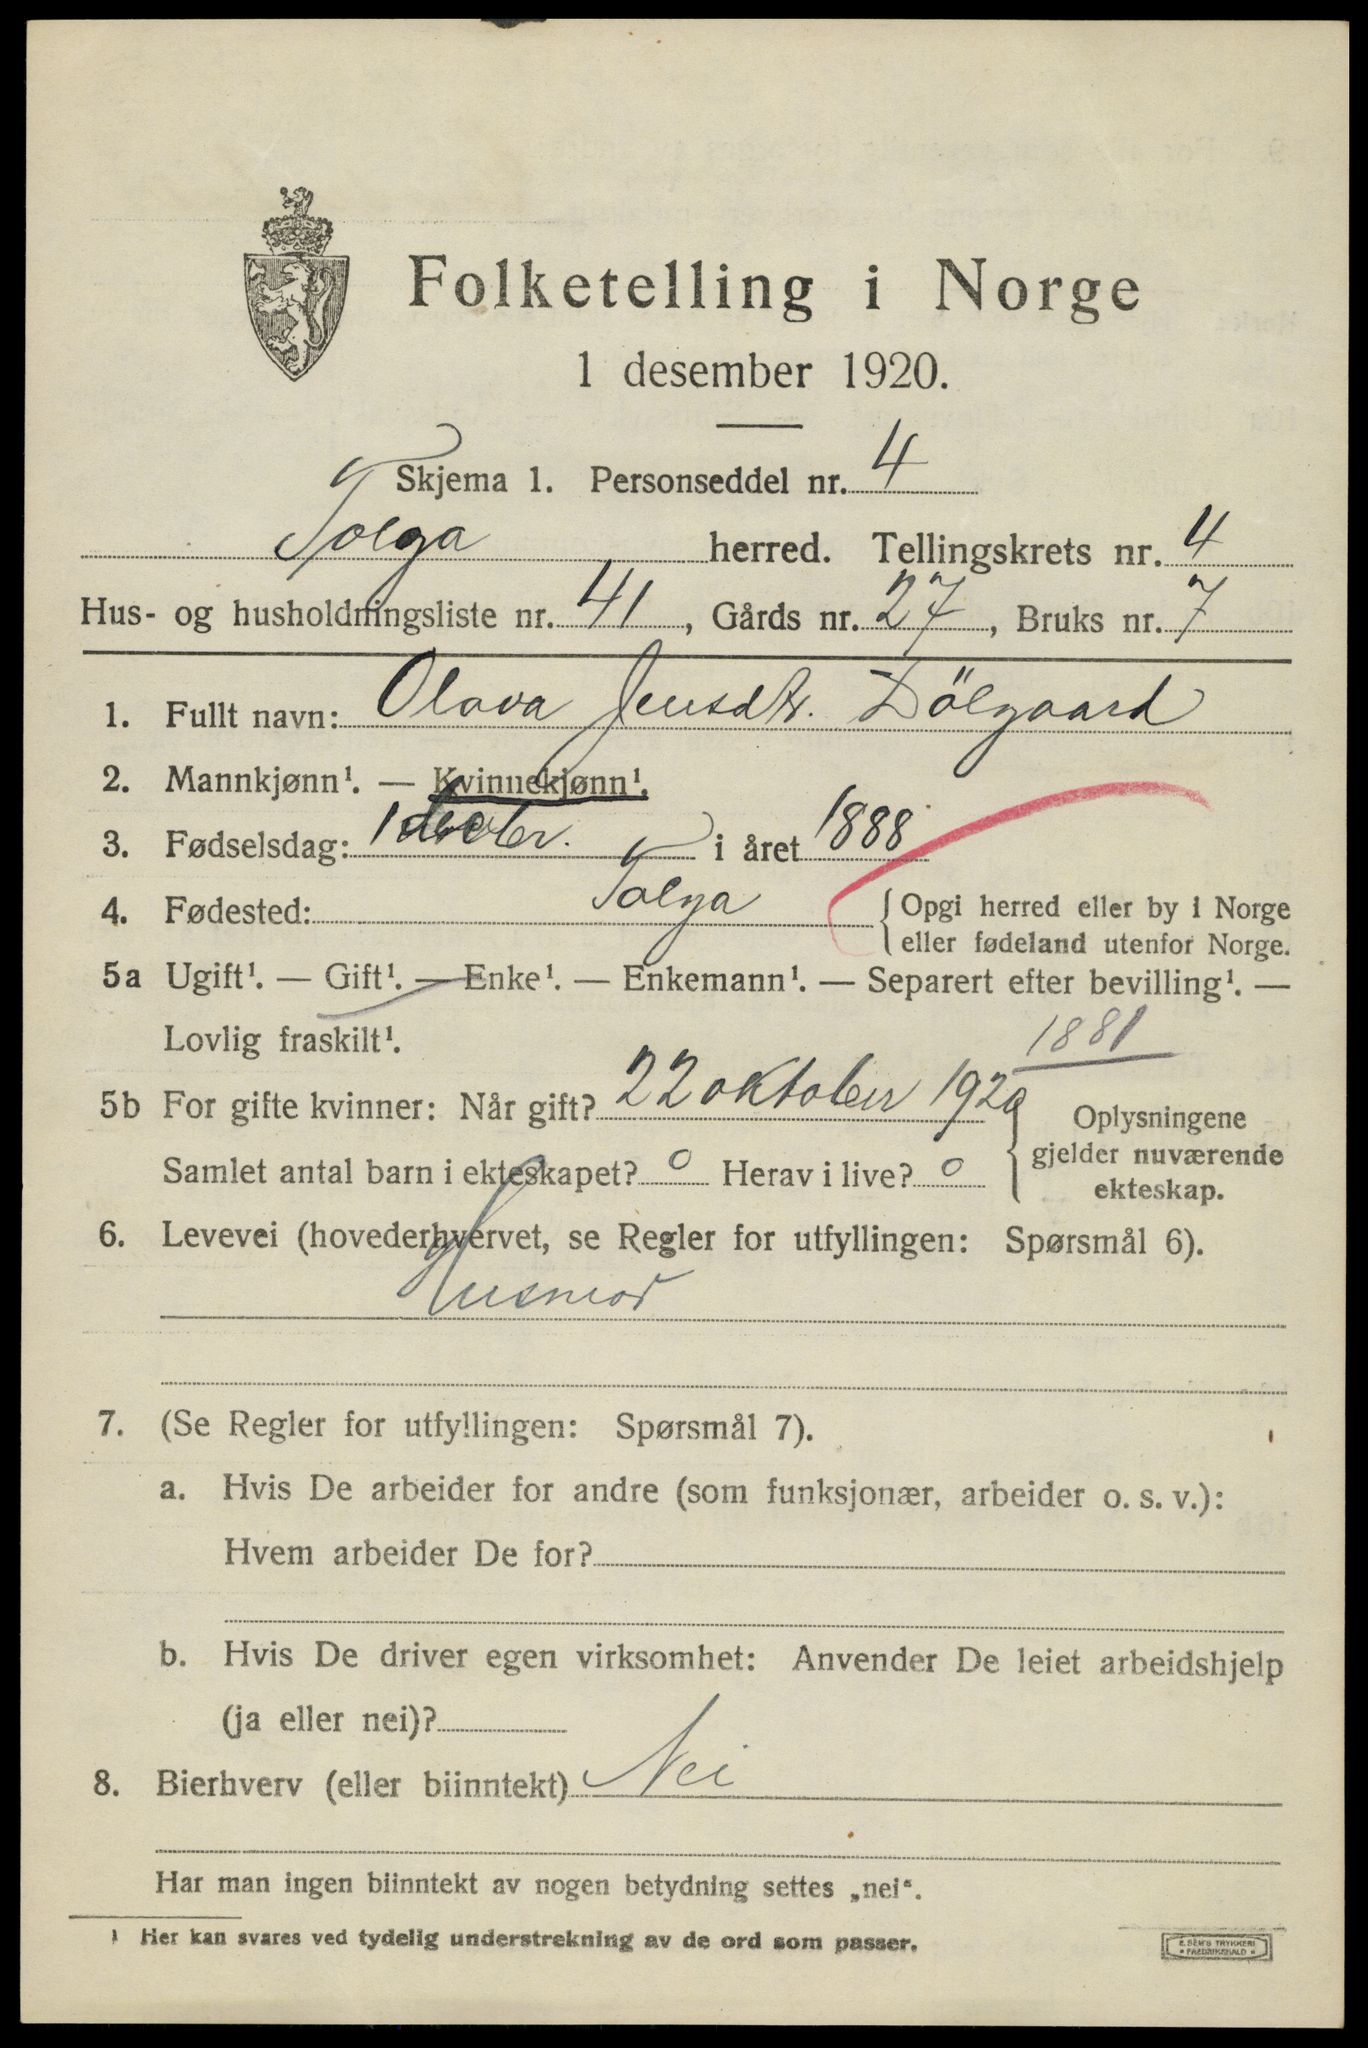 Folketelling i Norge
1 desember 1920.
Skjema 1. Personseddel nr. 4
Tolga herred. Tellingskrets nr. 4
Hus- og husholdningsliste nr. 41, Gårds nr. 27, Bruks nr. 7
1. Fullt navn: Olava Jensdtr. Dölgaard
2. Mannkjønn¹. — Kvinnekjønn¹.
3. Fødselsdag: 1 i året 1888
4. Fødested: Tolga {Opgi herred eller by i Norge
eller fødeland utenfor Norge.
5a Ugift¹. — Gift¹. — Enke¹. — Enkemann¹. — Separert efter bevilling¹. —
Lovlig fraskilt¹.
1881
5b For gifte kvinner: Når gift? 22 oktober 1920
Samlet antal barn i ekteskapet? 0 Herav i live? 0
{Oplysningene
gjelder nuværende
ekteskap.
6. Levevei (hovederhvervet, se Regler for utfyllingen: Spørsmål 6).
Husmor
7. (Se Regler for utfyllingen: Spørsmål 7).
a. Hvis De arbeider for andre (som funksjonær, arbeider o. s. v.):
Hvem arbeider De for?
b. Hvis De driver egen virksomhet: Anvender De leiet arbeidshjelp
(ja eller nei)?
8. Bierhverv (eller biinntekt) Nei
Har man ingen biinntekt av nogen betydning settes „nei“.
¹ Her kan svares ved tydelig understrekning av de ord som passer.
E. SEM'S TRYKKERI
• FREDRIKSHALD •